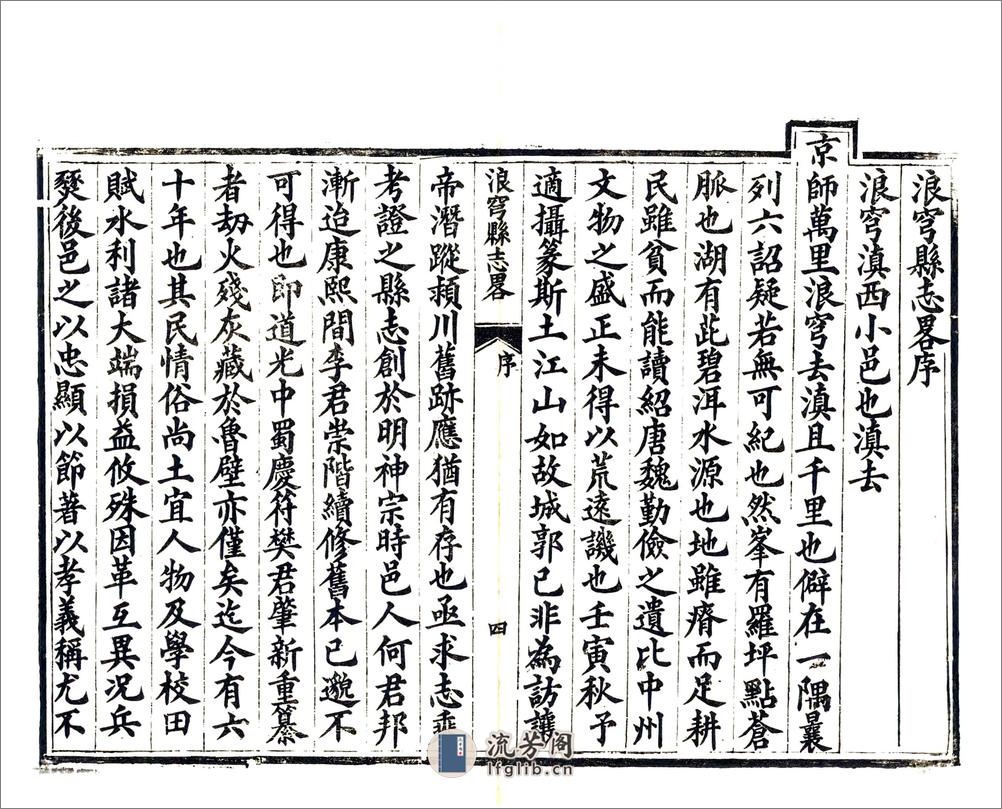 浪穹縣志畧序
浪穹滇西小邑也滇去
京師萬里浪穹去滇且千里也僻在一隅曩
列六詔疑若無可紀也然峯有羅坪點蒼
脈也湖有茈碧洱水源也地雖瘠而足耕
民雖貧而能讀紹唐魏勤儉之遺比中州
文物之盛正未得以荒遠譏也壬寅秋予
適攝篆斯土江山如故城郭已非為訪讓
浪穹縣志畧
序
四
帝潛蹤潁川舊跡應猶有存也亟求志乘
考證之縣志創於明神宗時邑人何君邦
漸迨康熙間李君崇階續修舊本已邈不
可得也即道光中蜀慶符樊君肇新重纂
者刧火殘灰藏於魯壁亦僅矣迄今有六
十年也其民情俗尚土宜人物及學校田
賦水利諸大端損益攸殊因革互異況兵
燹後邑之以忠顯以節著以孝義稱尤不
流芳阁
lfglib.cn